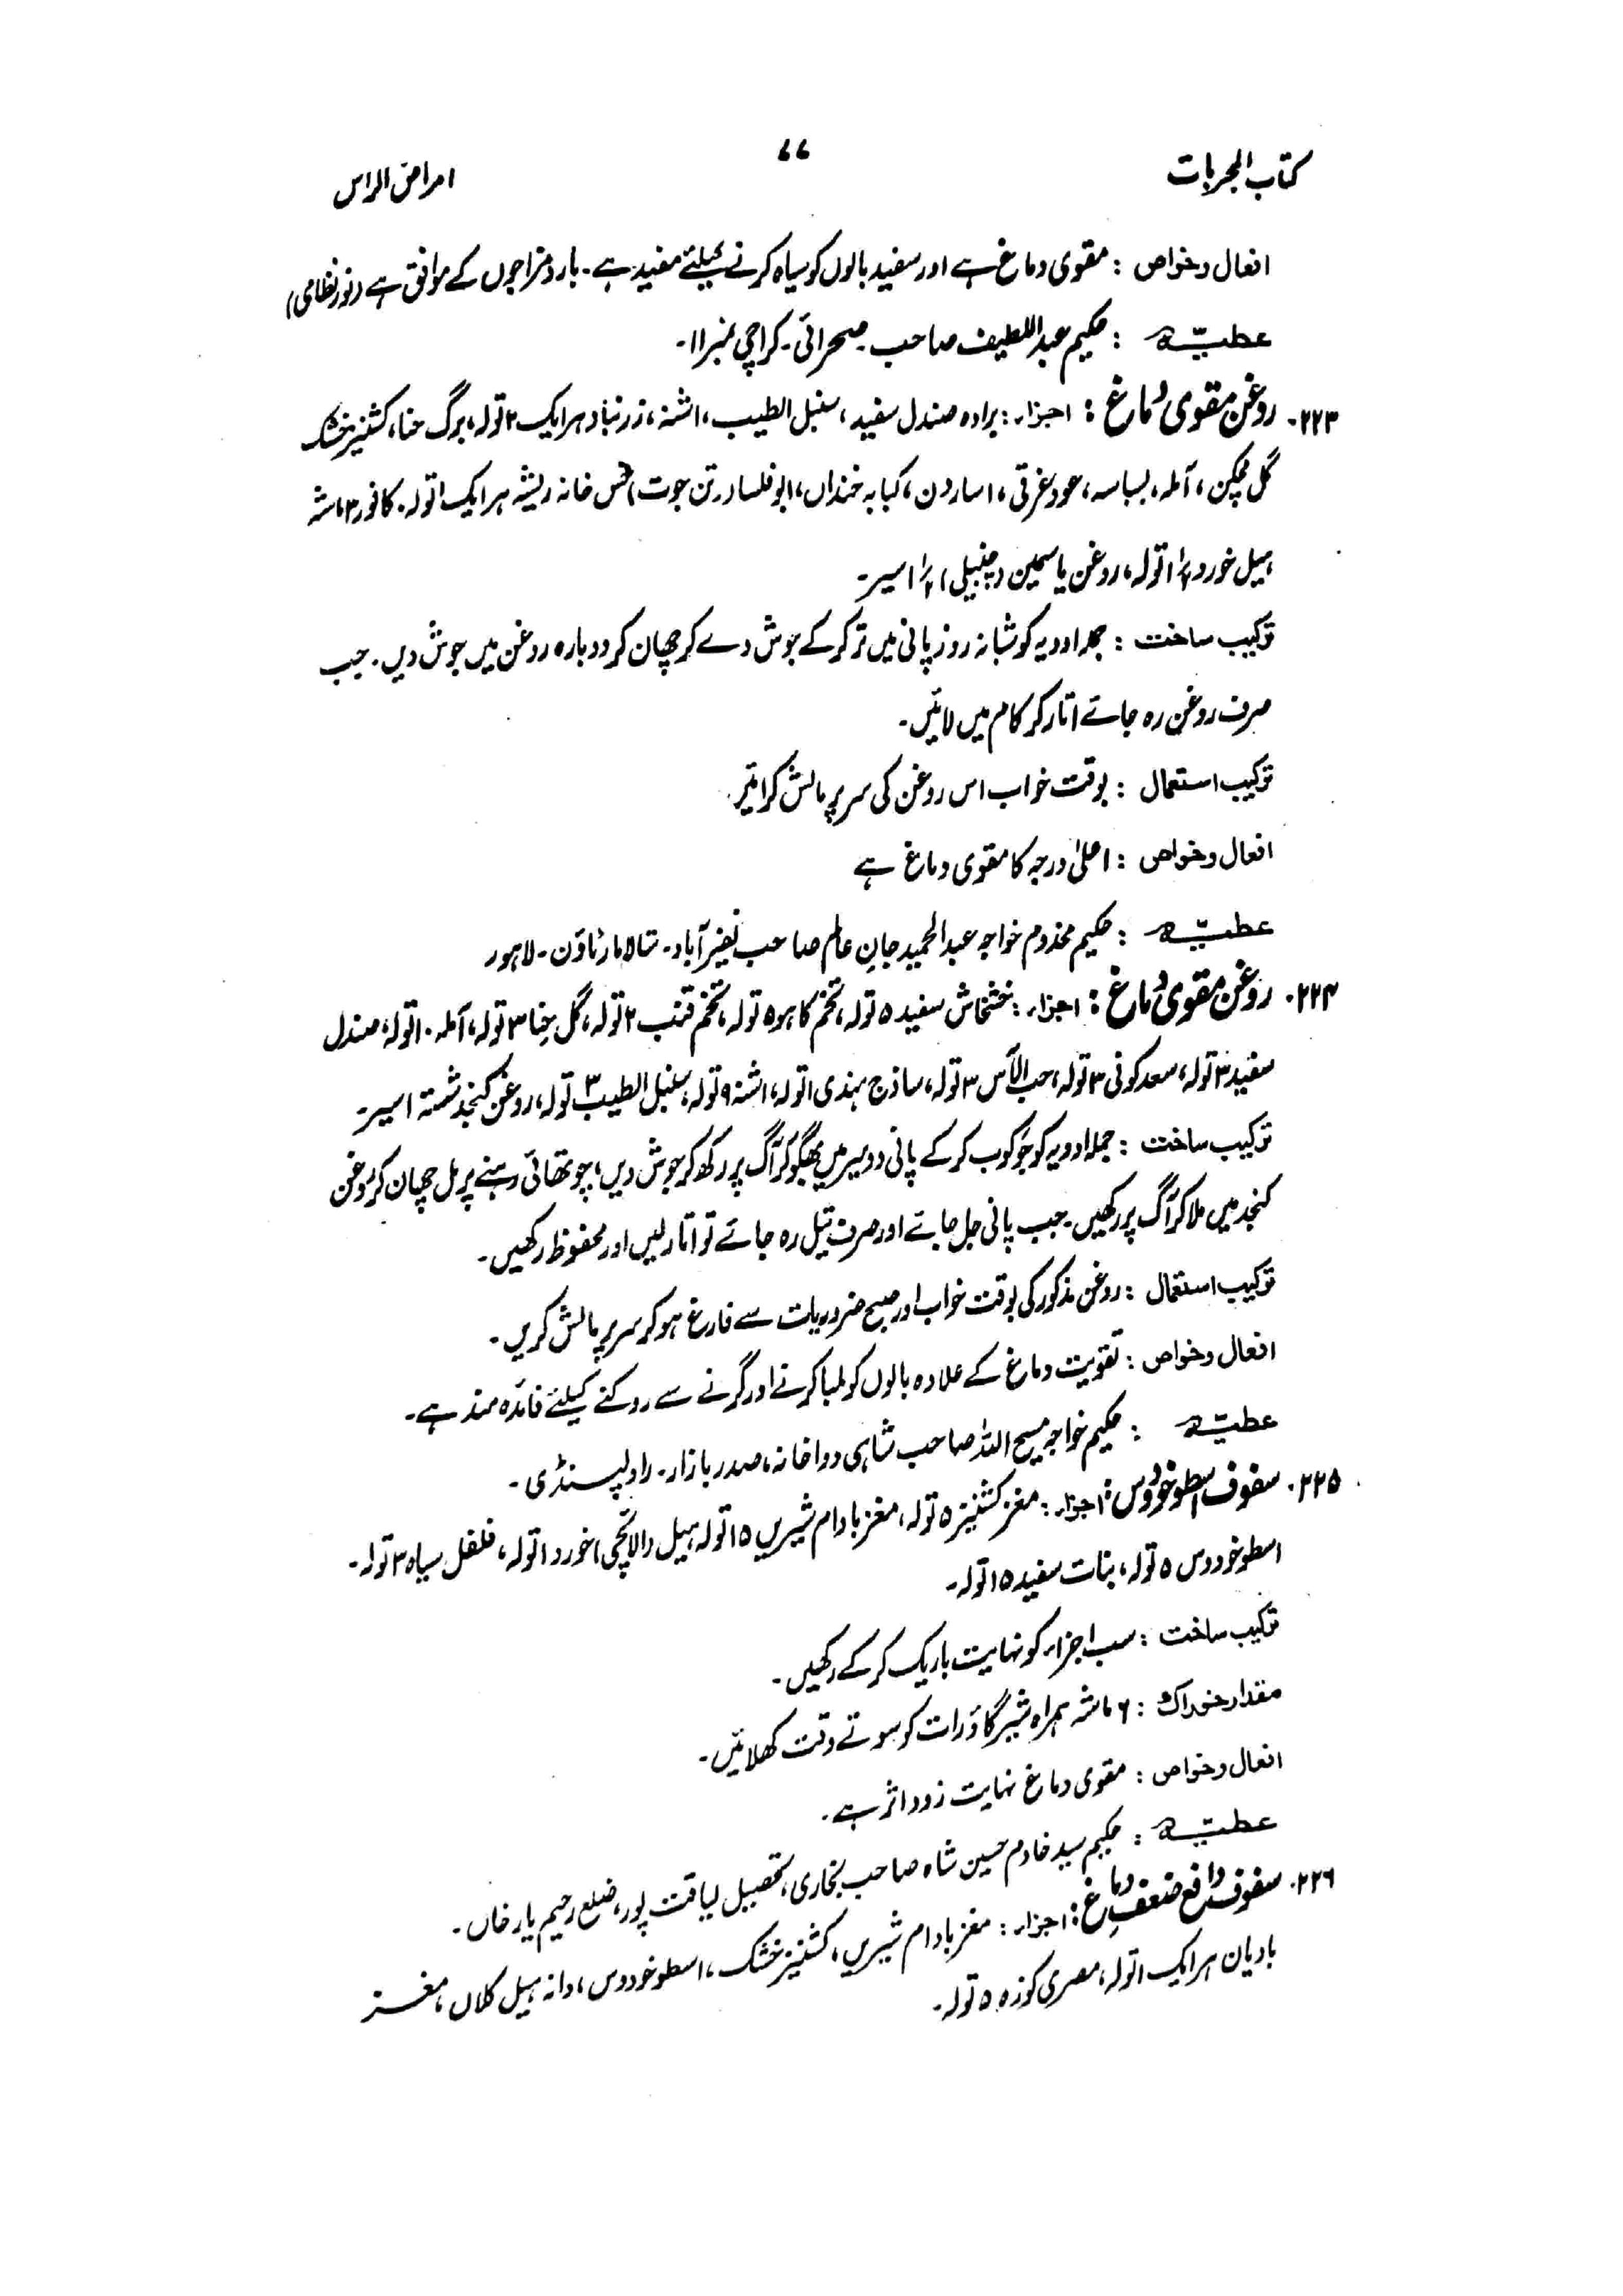 کتاب المجربات
۷۷
امراض الراس
افعال وخواص : مقوی دماغ ہے اور سفید بالوں کو سیاہ کرنے کیلئے مفید ہے۔ بارد مزاجوں کے موافق ہے (نور نظامی)
عطیّہ : حکیم عبداللطیف صاحب صحرائی۔ کراچی نمبر ۱۱۔
۲۲۳۔ روغن مقوی دماغ : اجزاء : برادہ صندل سفید، سنبل الطیب، اشنہ، زرنباد ہر ایک ۲ تولہ، برگ حنا، کشنیز خشک
گل چمکن، آملہ، بسباسہ، عود غرقی، اسارون، کبابہ خنداں، ابوخلسا (رتن جوت) خس خانہ ریشہ ہر ایک ۱ تولہ۔ کافور ۳ ماشہ
ہیل خورد ۱/۲ ۱ تولہ، روغن یاسمین (چنبیلی) ۱/۲ ۱ سیر۔
ترکیب ساخت : جملہ ادویہ کو شبانہ روز پانی میں تر کر کے جوش دے کر چھان کر دوبارہ روغن میں جوش دیں۔ جب
صرف روغن رہ جائے اتار کر کام میں لائیں۔
ترکیب استعمال : بوقت خواب اس روغن کی سر پر مالش کرائیں۔
افعال وخواص : اعلیٰ درجہ کا مقوی دماغ ہے
عطیّہ : حکیم مخدوم خواجہ عبدالحمید جانِ عالم صاحب نصیر آباد۔ شالامار ٹاؤن۔ لاہور
۲۲۴۔ روغن مقوی دماغ : اجزاء : خشخاش سفید ۵ تولہ، تخم کاہو ۵ تولہ، تخم قنب ۲ تولہ، گل حنا ۳ تولہ، آملہ ۱۰ تولہ، صندل
سفید ۳ تولہ، سعد کوفی ۳ تولہ، حب الآس ۳ تولہ، ساذج ہندی ۱ تولہ، اشنہ ۹ تولہ، سنبل الطیب ۳ تولہ، روغن کنجد شستہ ۱ سیر۔
ترکیب ساخت : جملہ ادویہ کو جَوکوب کر کے پانی دو سیر میں بھگو کر آگ پر رکھ کر جوش دیں، چوتھائی رہنے پر مل چھان کر روغن
کنجد میں ملا کر آگ پر رکھیں۔ جب پانی جل جائے اور صرف تیل رہ جائے تو اتار لیں اور محفوظ رکھیں۔
ترکیب استعمال : روغن مذکور کی بوقت خواب اور صبح ضروریات سے فارغ ہو کر سر پر مالش کریں۔
افعال وخواص : تقویت دماغ کے علاوہ بالوں کو لمبا کرنے اور گرنے سے روکنے کیلئے فائدہ مند ہے۔
عطیّہ : حکیم خواجہ مسیح اللہ صاحب شاہی دواخانہ، صدر بازار۔ راولپنڈی۔
۲۲۵۔ سفوف اسطوخودوس : اجزاء : مغز کشنیز ۵ تولہ، مغز بادام شیریں ۱۵ تولہ ہیل (الائچی) خورد ۱ تولہ، فلفل سیاہ ۳ تولہ۔
اسطوخودوس ۵ تولہ، بنات سفید ۱۵ تولہ۔
ترکیب ساخت : سب اجزاء کو نہایت باریک کر کے رکھیں۔
مقدار خوراک : ۶ ماشہ ہمراہ شیر گاؤ رات کو سوتے وقت کھلائیں۔
افعال وخواص : مقوی دماغ نہایت زود اثر ہے۔
عطیّہ : حکیم سید خادم حسین شاہ صاحب بخاری، تحصیل لیاقت پور، ضلع رحیم یار خاں۔
۲۲۶۔ سفوف دافع ضعف دماغ : اجزاء : مغز بادام شیریں، کشنیز خشک، اسطوخودوس، دانہ ہیل کلاں، مغز
بادیان ہر ایک ۱ تولہ، مصری کوزہ ۵ تولہ۔